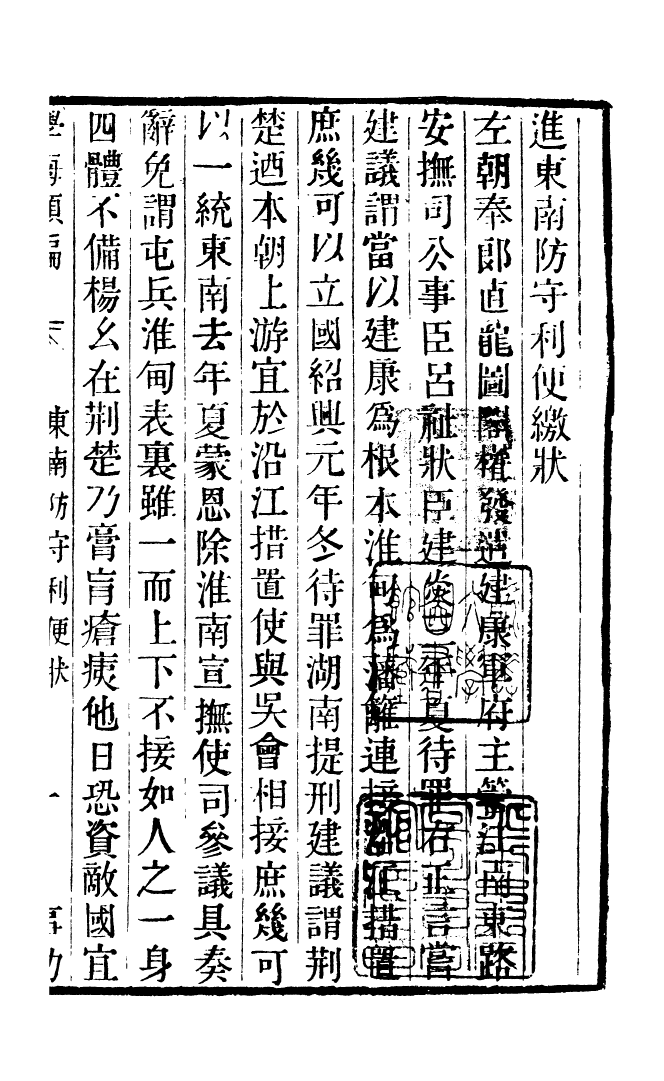 進東南防守利便繳狀
左朝奉郎直龍圖閣權發遣建康軍府主管江南東路
安撫司公事臣呂祉狀臣建炎四年夏待罪右正言嘗
建議謂當以建康為根本淮甸為藩籬連接沿江措置
庶幾可以立國紹興元年冬待罪湖南提刑建議謂荆
楚迺本朝上游宜於沿江措置使與吳會相接庶幾可
以一統東南去年夏蒙恩除淮南宣撫使司參議具奏
辭免謂屯兵淮甸表裏雖一而上下不接如人之一身
四體不備楊幺在荆楚乃膏肓瘡痍他日恐資敵國宜
學海類編 東南防守利便狀 一